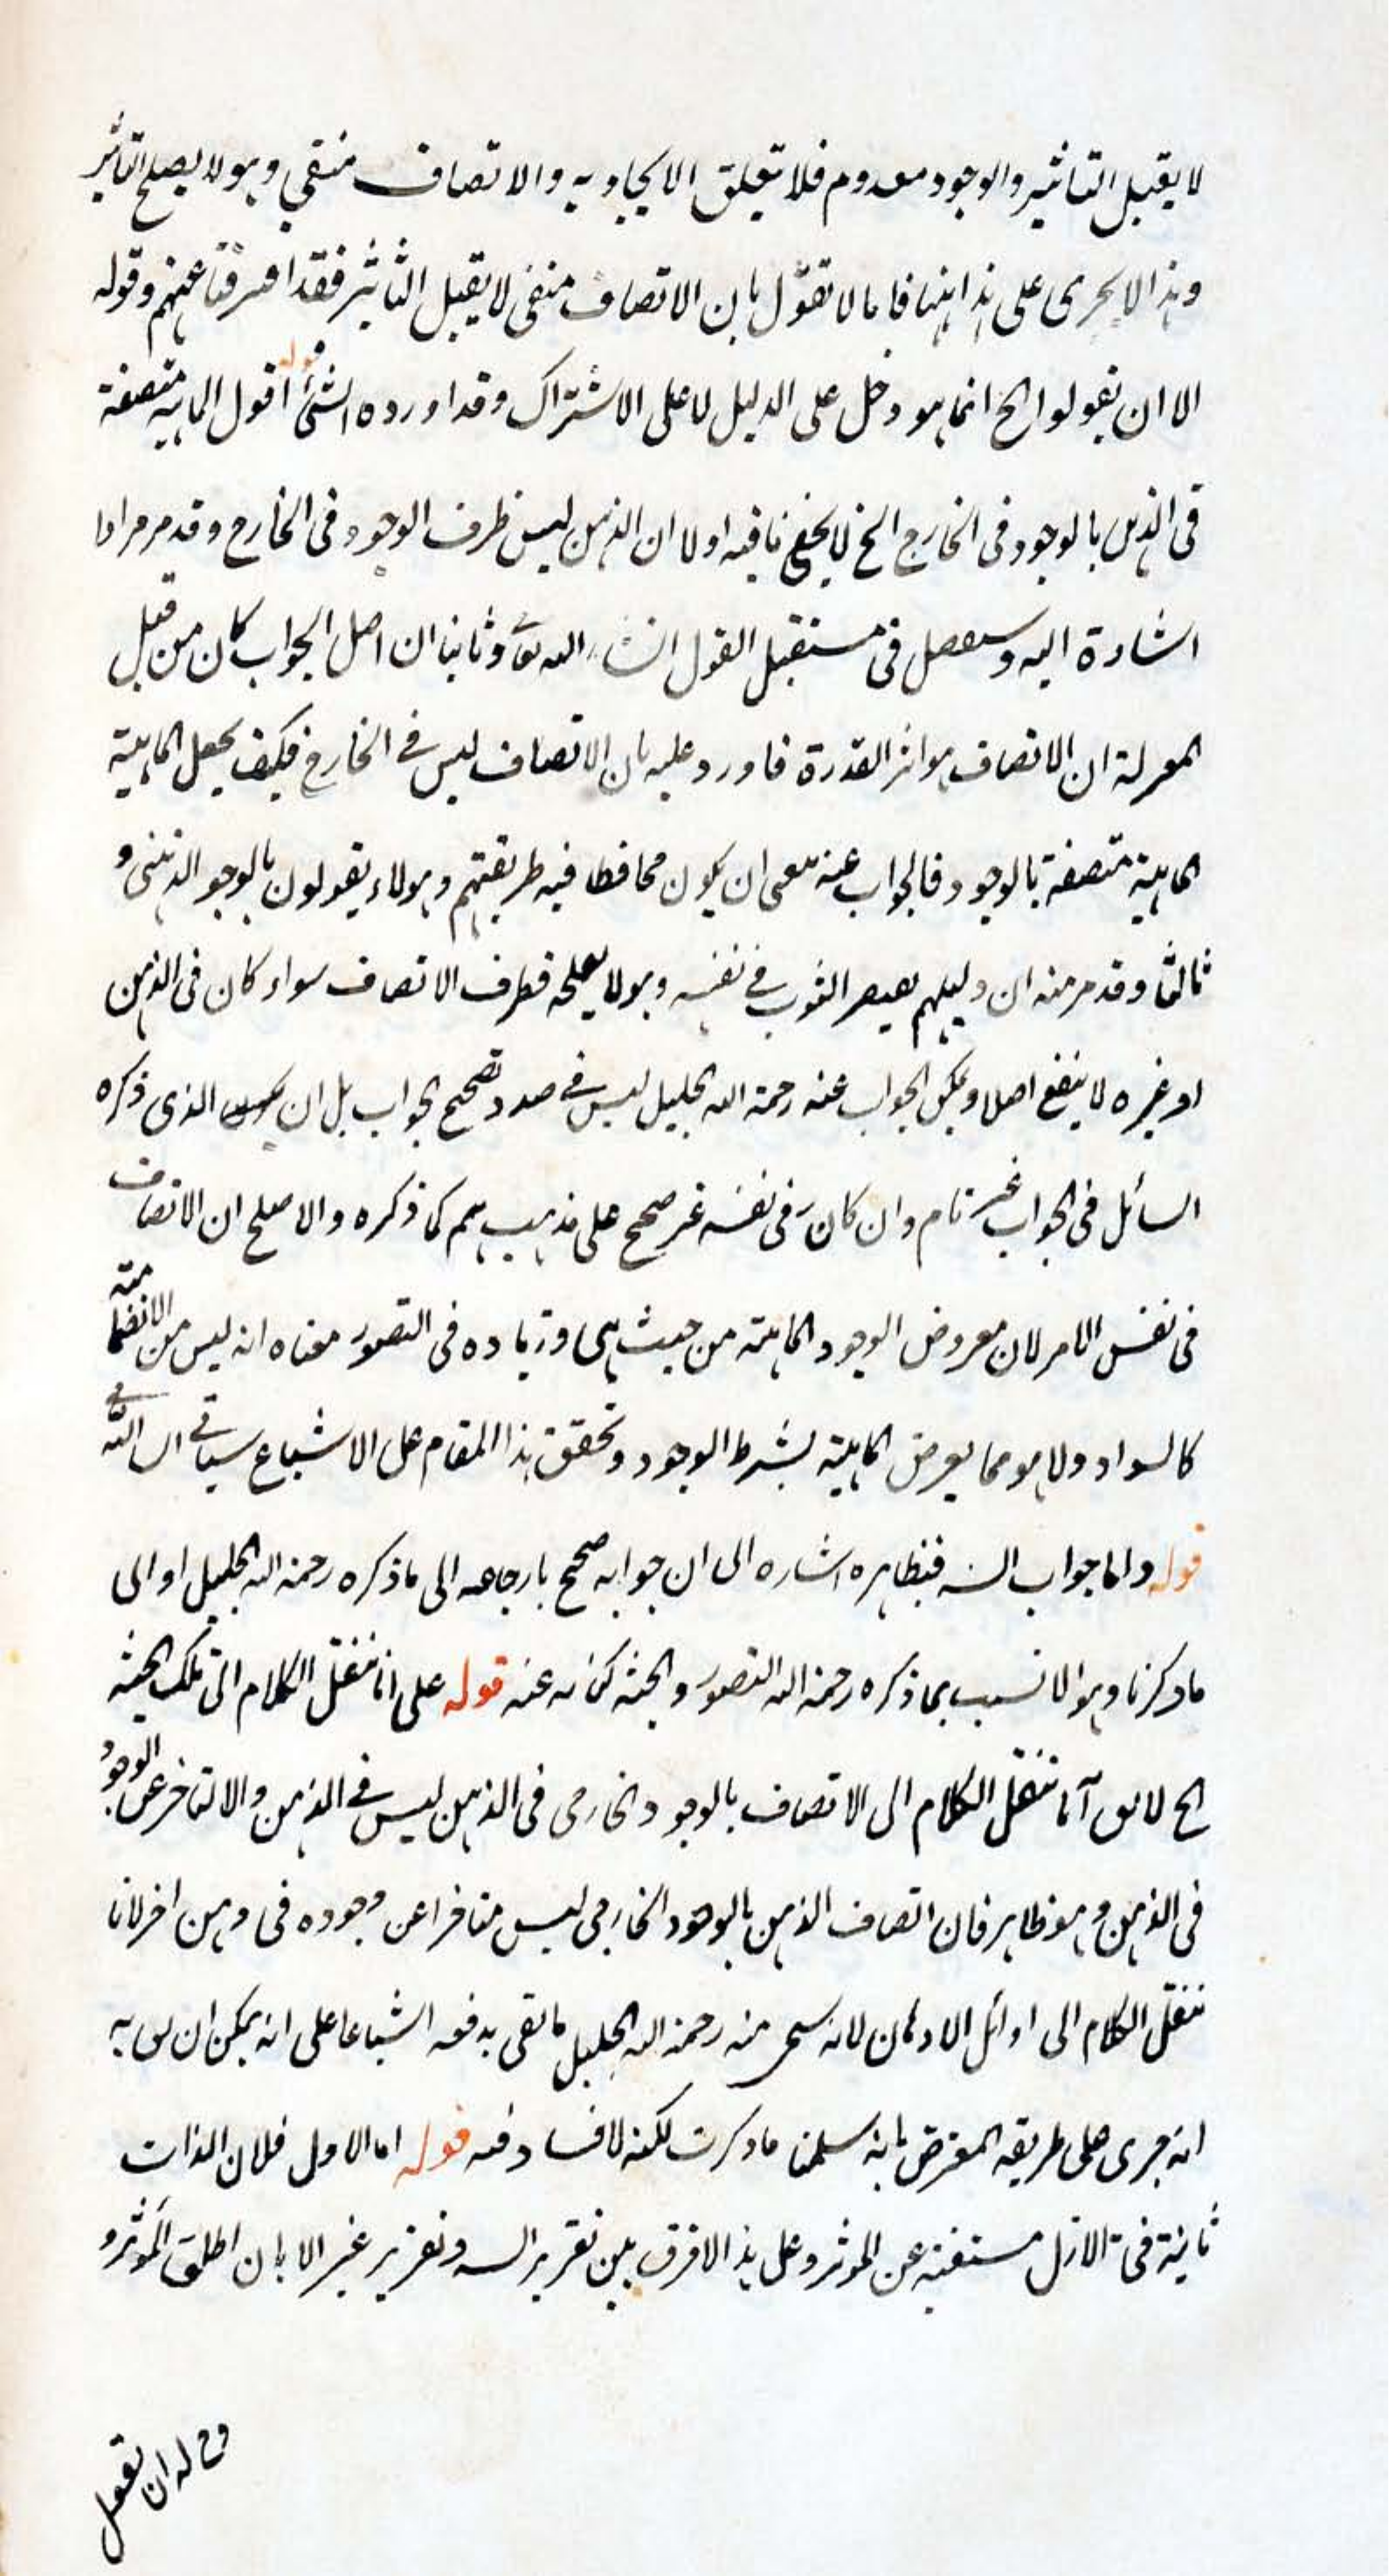 لا يقبل التاثير والوجود معدوم فلا تتعلق الايجاد به والاتصاف منتفى وهو لا يصلح التاثير
وهذا لا يجرى على مذاهبنا فانا لا نقول بان الاتصاف منفى لا يقبل التأثير فقد افترقتا عنهم وقوله
الا ان يقولوا الخ انما هو دخل على الدليل لا على الاشتراك وقد اورده الشئ قوله اقول الماهية متصفة
فى الذهن بالوجود فى الخارج الخ لا يخفى ما فيه اولا ان الذهن ليس ظرف الوجود فى الخارج وقد مر مرارا
اشارة اليه وسيفصل فى مستقبل القول انشاء الله تعالى وثانيا ان اصل الجواب كان من قبل
المعتزلة ان الاتصاف هو اثر القدرة فاورد عليه بان الاتصاف ليس فى الخارج فكيف يجعل الماهية
الماهية متصفة بالوجود فالجواب عنه ينبغى ان يكون محافظا فيه طريقتهم وهولاء يقولون بالوجو الذهنى و
ثالثا وقد مر منه ان دليلهم الثبوت فى نفسه وهو لا يصلحه فظرف الاتصاف سواء كان فى الذهن
او غيره لا ينفع اصلا ويمكن الجواب عنه رحمة الله الجليل ليس فى صدد تصحيح الجواب بل ان الذى ذكره
السائل فى الجواب غير تام وان كان فى نفسه غير صحيح على مذهبهم كما ذكره والاصلح ان الاتصاف
فى نفس الامر لان معروض الوجود الماهية من حيث هى وزيادة فى التصور معناه انه ليس من الانضمامية
كالسواد ولا هو مما يعرض الماهية بشرط الوجود وتحقق هذا المقام على الاشباع سياتى فى ان الله
قوله واما جواب الش فبظاهره اشارة الى ان جوابه صحيح بارجاعه الى ما ذكره رحمة الله الجليل او الى
ما ذكرنا وهو الانسب بما ذكره رحمة الله التصور والجنة كناية عنه قوله على انا ننقل الكلام الى تلك الحيثية
الخ لا يق انا ننقل الكلام الى الاتصاف بالوجود الخارجى فى الذهن ليس فى الذهن والا لتاخر عن الوجود
فى الذهن وهو ظاهر فان اتصاف الذهن بالوجود الخارجى ليس متاخرا عن وجوده فى ذهن اخر لانا
ننقل الكلام الى اوائل الاذهان لانه سيجئ منه رحمة الله الجليل ما يقى بدفعه اشباعا على انه يمكن ان يق به
انه جرى على طريقه المعترض بانه سلمنا ما ذكرت لكنه لا فساد فيه قوله اما الاول فلان الذات
ثابتة فى الازل مستغنية عن المؤثر وعلى هذا لا فرق بين تقرير الش وتقرير غيره الا بان اطلق المؤثر و
وح له ان نقول